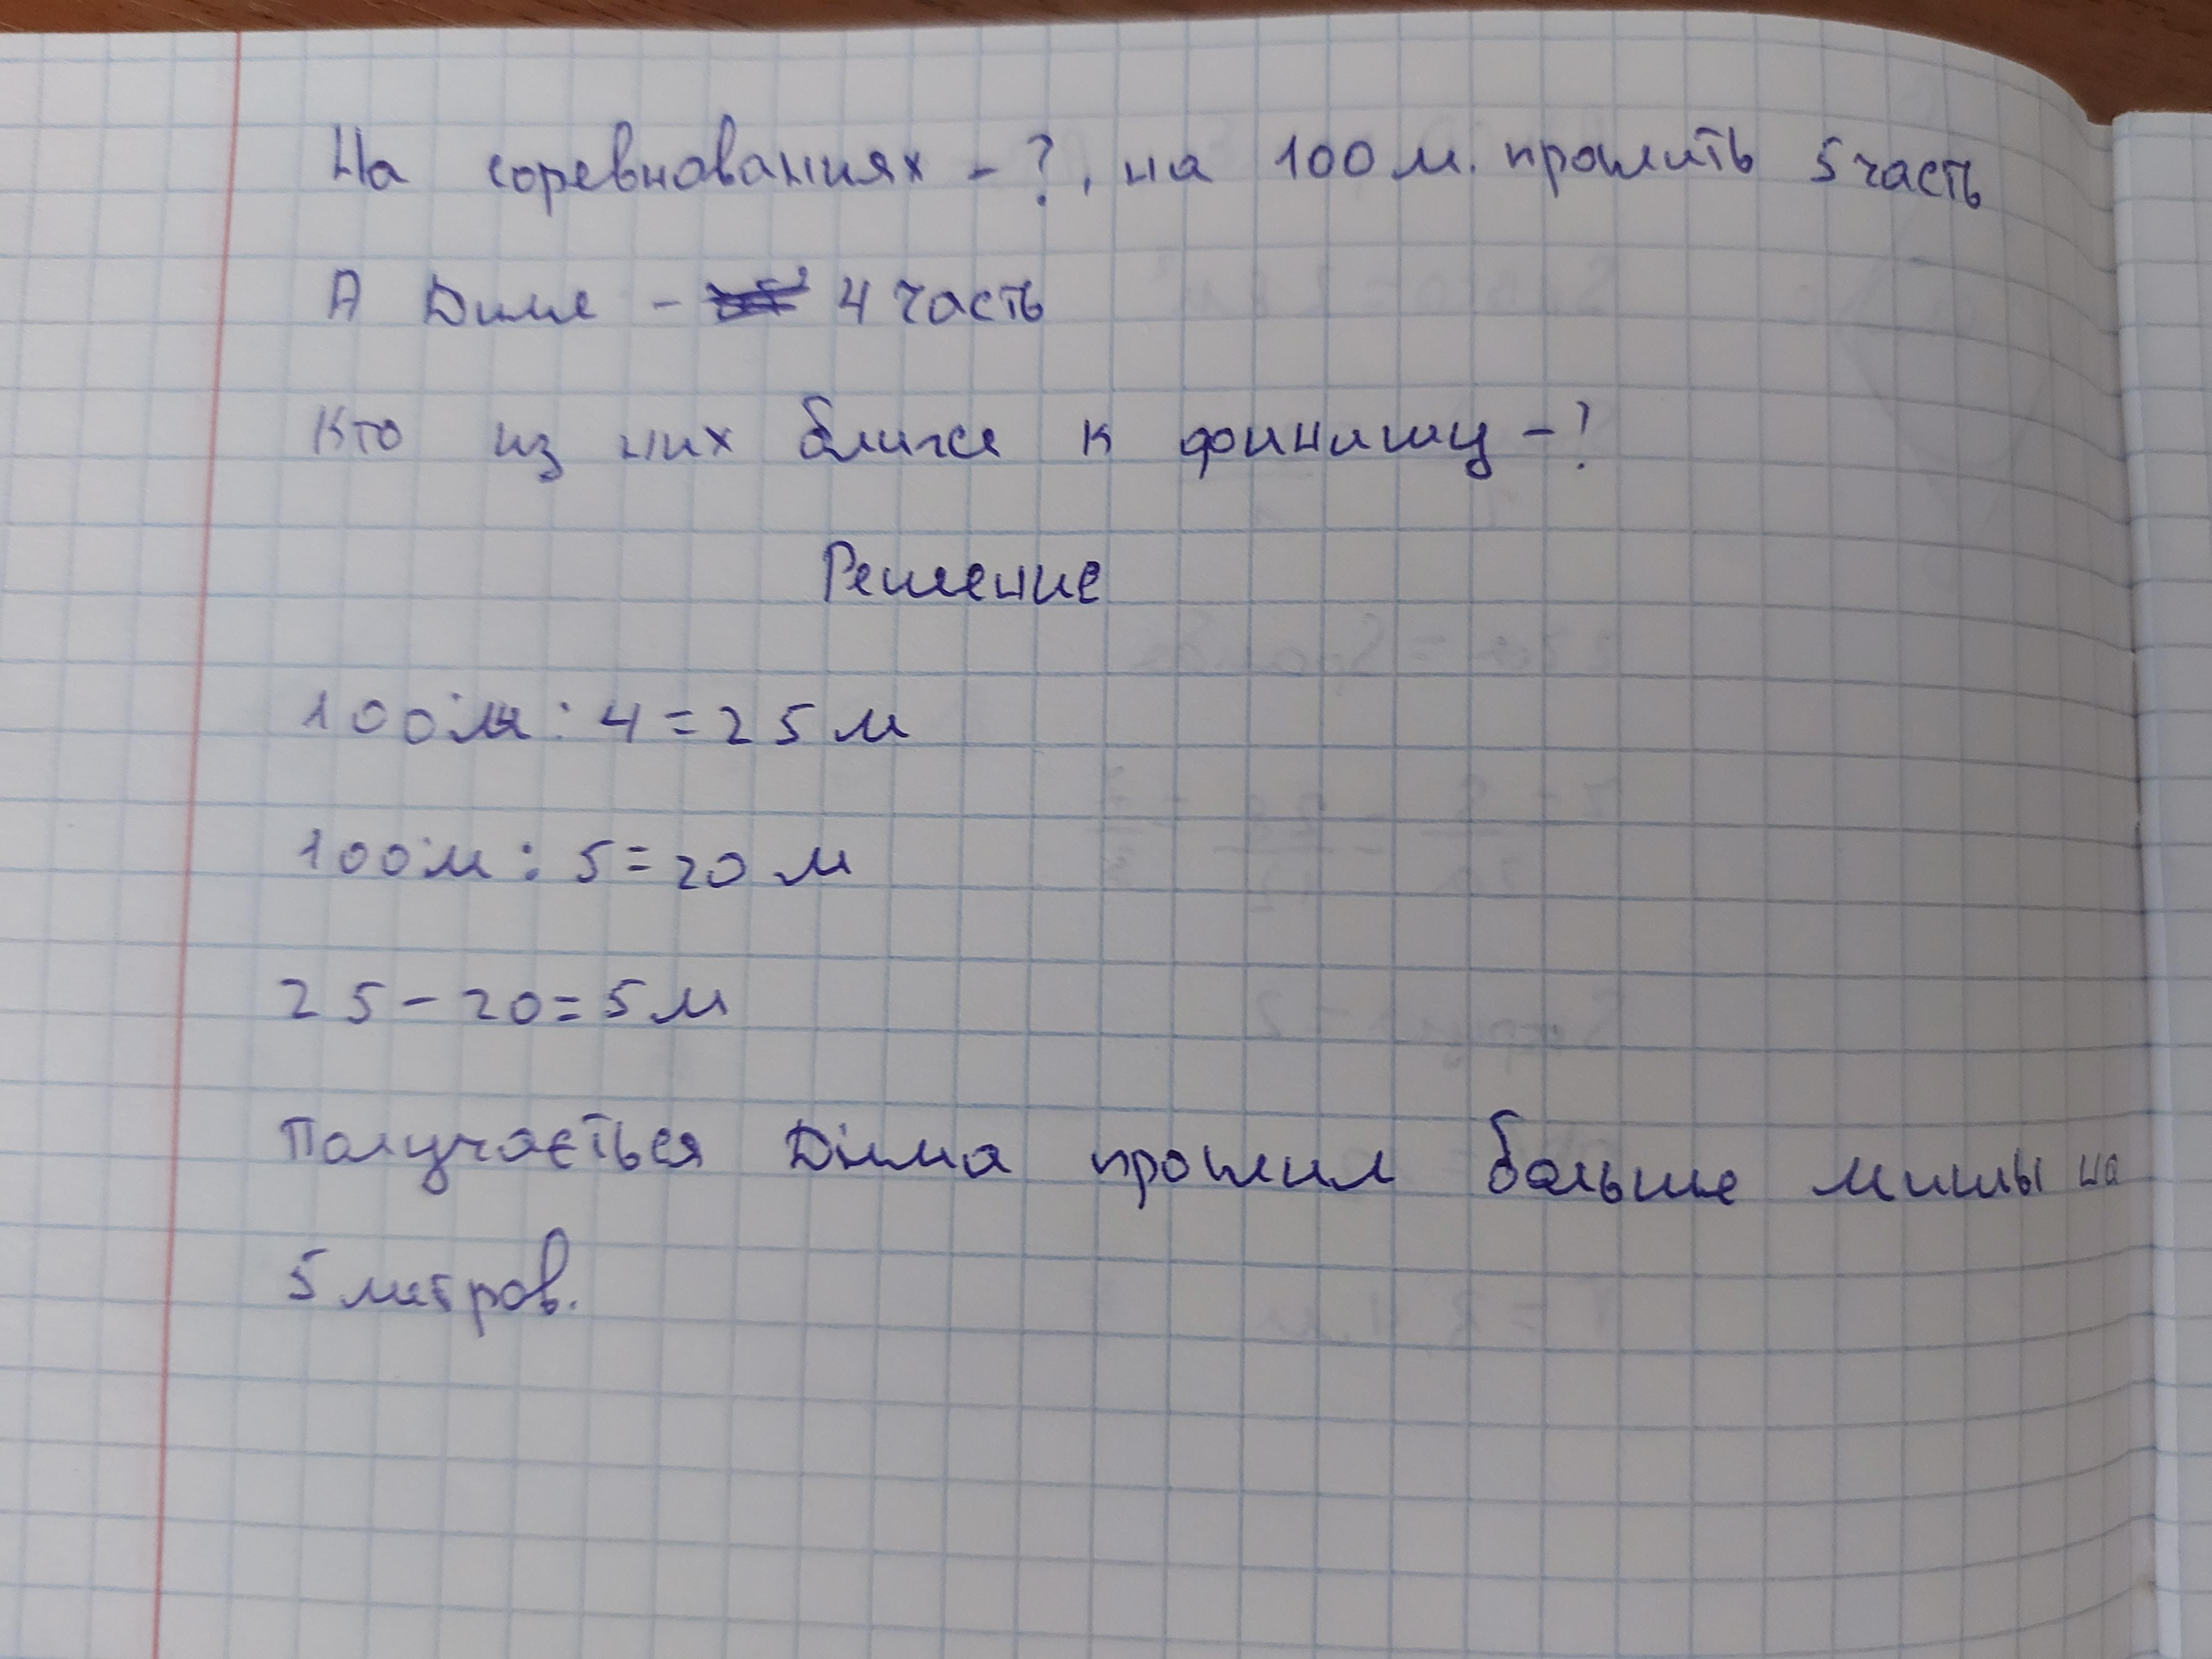 На соревнованиях - ?, на 100 м. проплить 5 часть
А Диме - 4 часть
Кто из них ближе к финишу - ?
Решение
100м : 4 = 25 м
100м : 5 = 20 м
25 - 20 = 5 м
Получається Діма проплил больше миши на
5 метров.